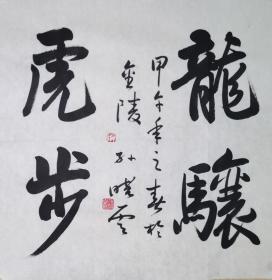 龍驤
虎步
甲午年之春於
金陵 孙晓云